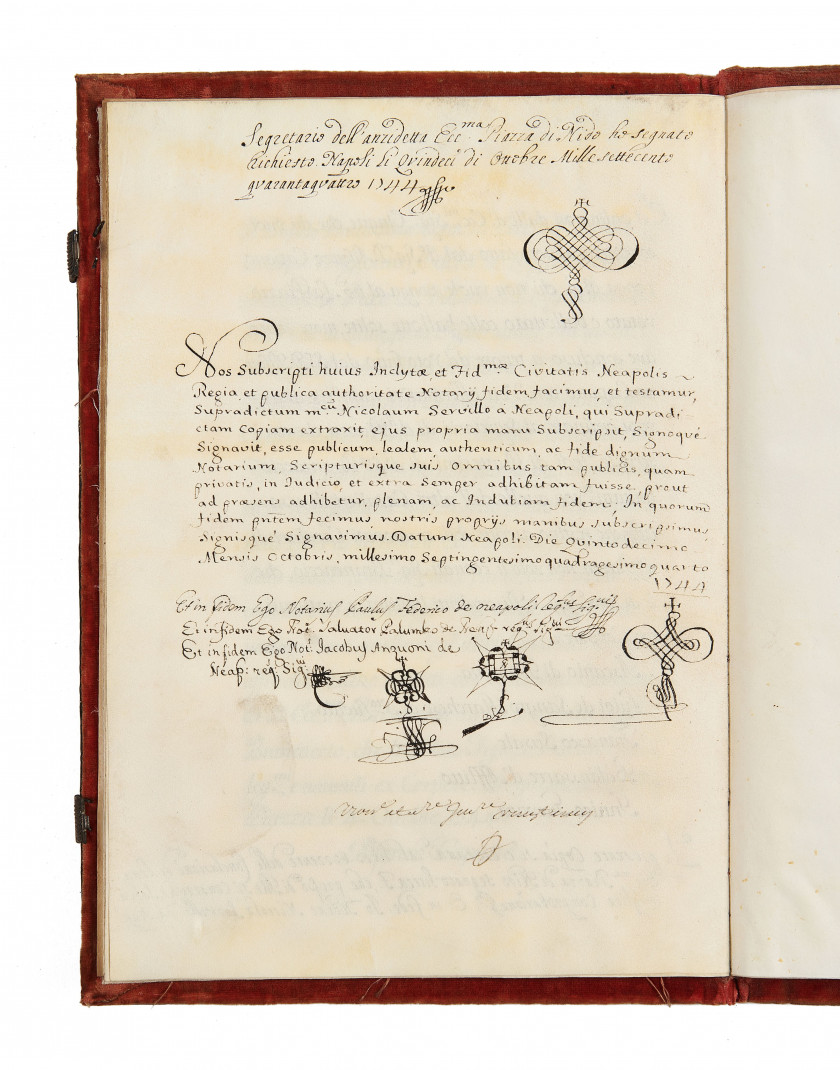 Segretario dell'anzidetta Ecc.ma Piazza di Nido ho segnato
Richiesto Napoli li Quindeci di Ottobre Mille settecento
quarantaquattro 1744
Nos Subscripti huius Inclytæ, et Fid.mæ Civitatis Neapolis
Regia, et publica authoritate Notarij fidem facimus, et testamur,
Supradictum m.cu Nicolaum Servillo a Neapoli, qui Supradi
ctam Copiam extraxit, ejus propria manu Subscripsit, Signoque
Signavit, esse publicum, lealem, authenticum, ac fide dignum
Notarium, Scripturisque suis Omnibus tam publicis, quam
privatis, in Iudicio, et extra Semper adhibitam fuisse, prout
ad præsens adhibetur, plenam, ac Indubiam fidem. In quorum
fidem pntem fecimus, nostris proprijs manibus subscripsimus
Signisque Signavimus. Datum Neapoli. Die Quinto decimo
Mensis Octobris, millesimo Septingentesimo quadragesimo quarto
1744
Et in fidem Ego Notarius Paulus Federico de Neapoli
Et in fidem Ego Not.s Salvator Palumbo de Neap.
Et in fidem Ego Not.s Jacobus de
Neap: req. Sig.